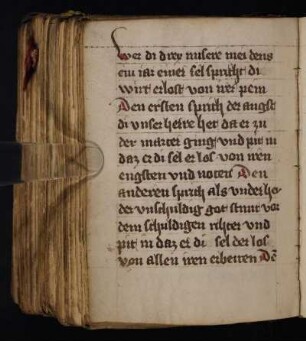 wer di drey misere mei dens
ein iar einer sel spricht di
wirt erlost von irer pein
Den ersten sprich der angst
di unser herre het da er zu
der marter ging und pit in
daz er di sel er los von iren
engsten und noten Den
anderen sprich als under her
der unschuldig got stunt vor
dem schuldigen rihter und
pit in daz er di sel der los
von allen iren erbeiten Dē